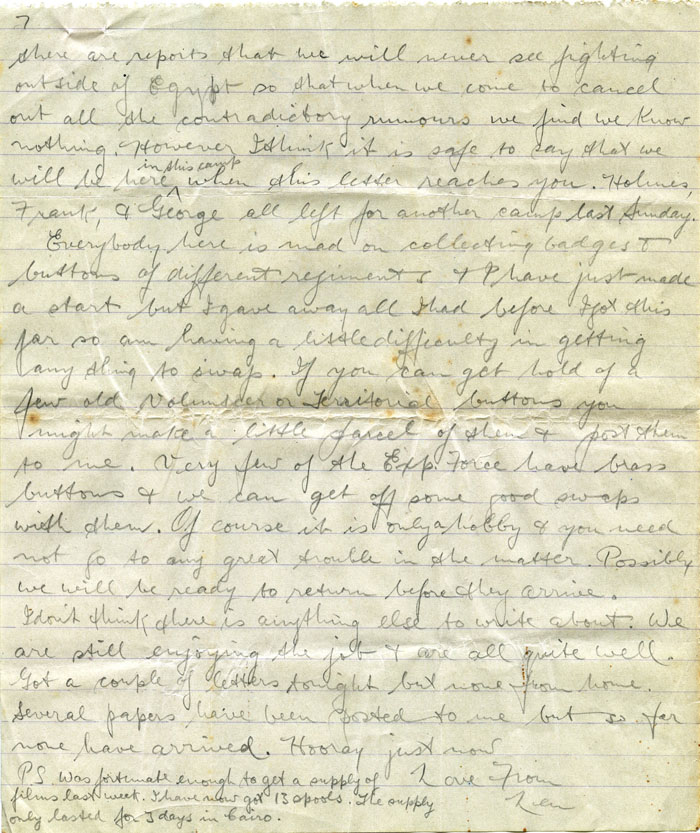 7
there are reports that we will never see fighting
outside of Egypt so that when we come to cancel
out all the contradictory rumours we find we know
nothing. However I think it is safe to say that we
in this camp
will be here ^ when this letter reaches you. Holmes,
Frank, & George all left for another camp last Sunday.
Everybody here is mad on collecting badges &
buttons of different regiments & I have just made
a start but I gave away all I had before I got this
far so am having a little difficulty in getting
any thing to swap. If you can get hold of a
few old Volunteer or Territorial buttons you
might make a little parcel of them & post them
to me. Very few of the Exp. Force have brass
buttons & we can get off some good swaps
with them. Of course it is only a hobby & you need
not go to any great trouble in the matter. Possibly
we will be ready to return before they arrive.
I don't think there is anything else to write about. We
are still enjoying the job & are all quite well.
Got a couple of letters tonight but none from home.
Several papers have been posted to me but so far
none have arrived. Hooray just now
Love From
Len
PS was fortunate enough to get a supply of
films last week. I have now got 13 spools. The supply
only lasted for 3 days in Cairo.